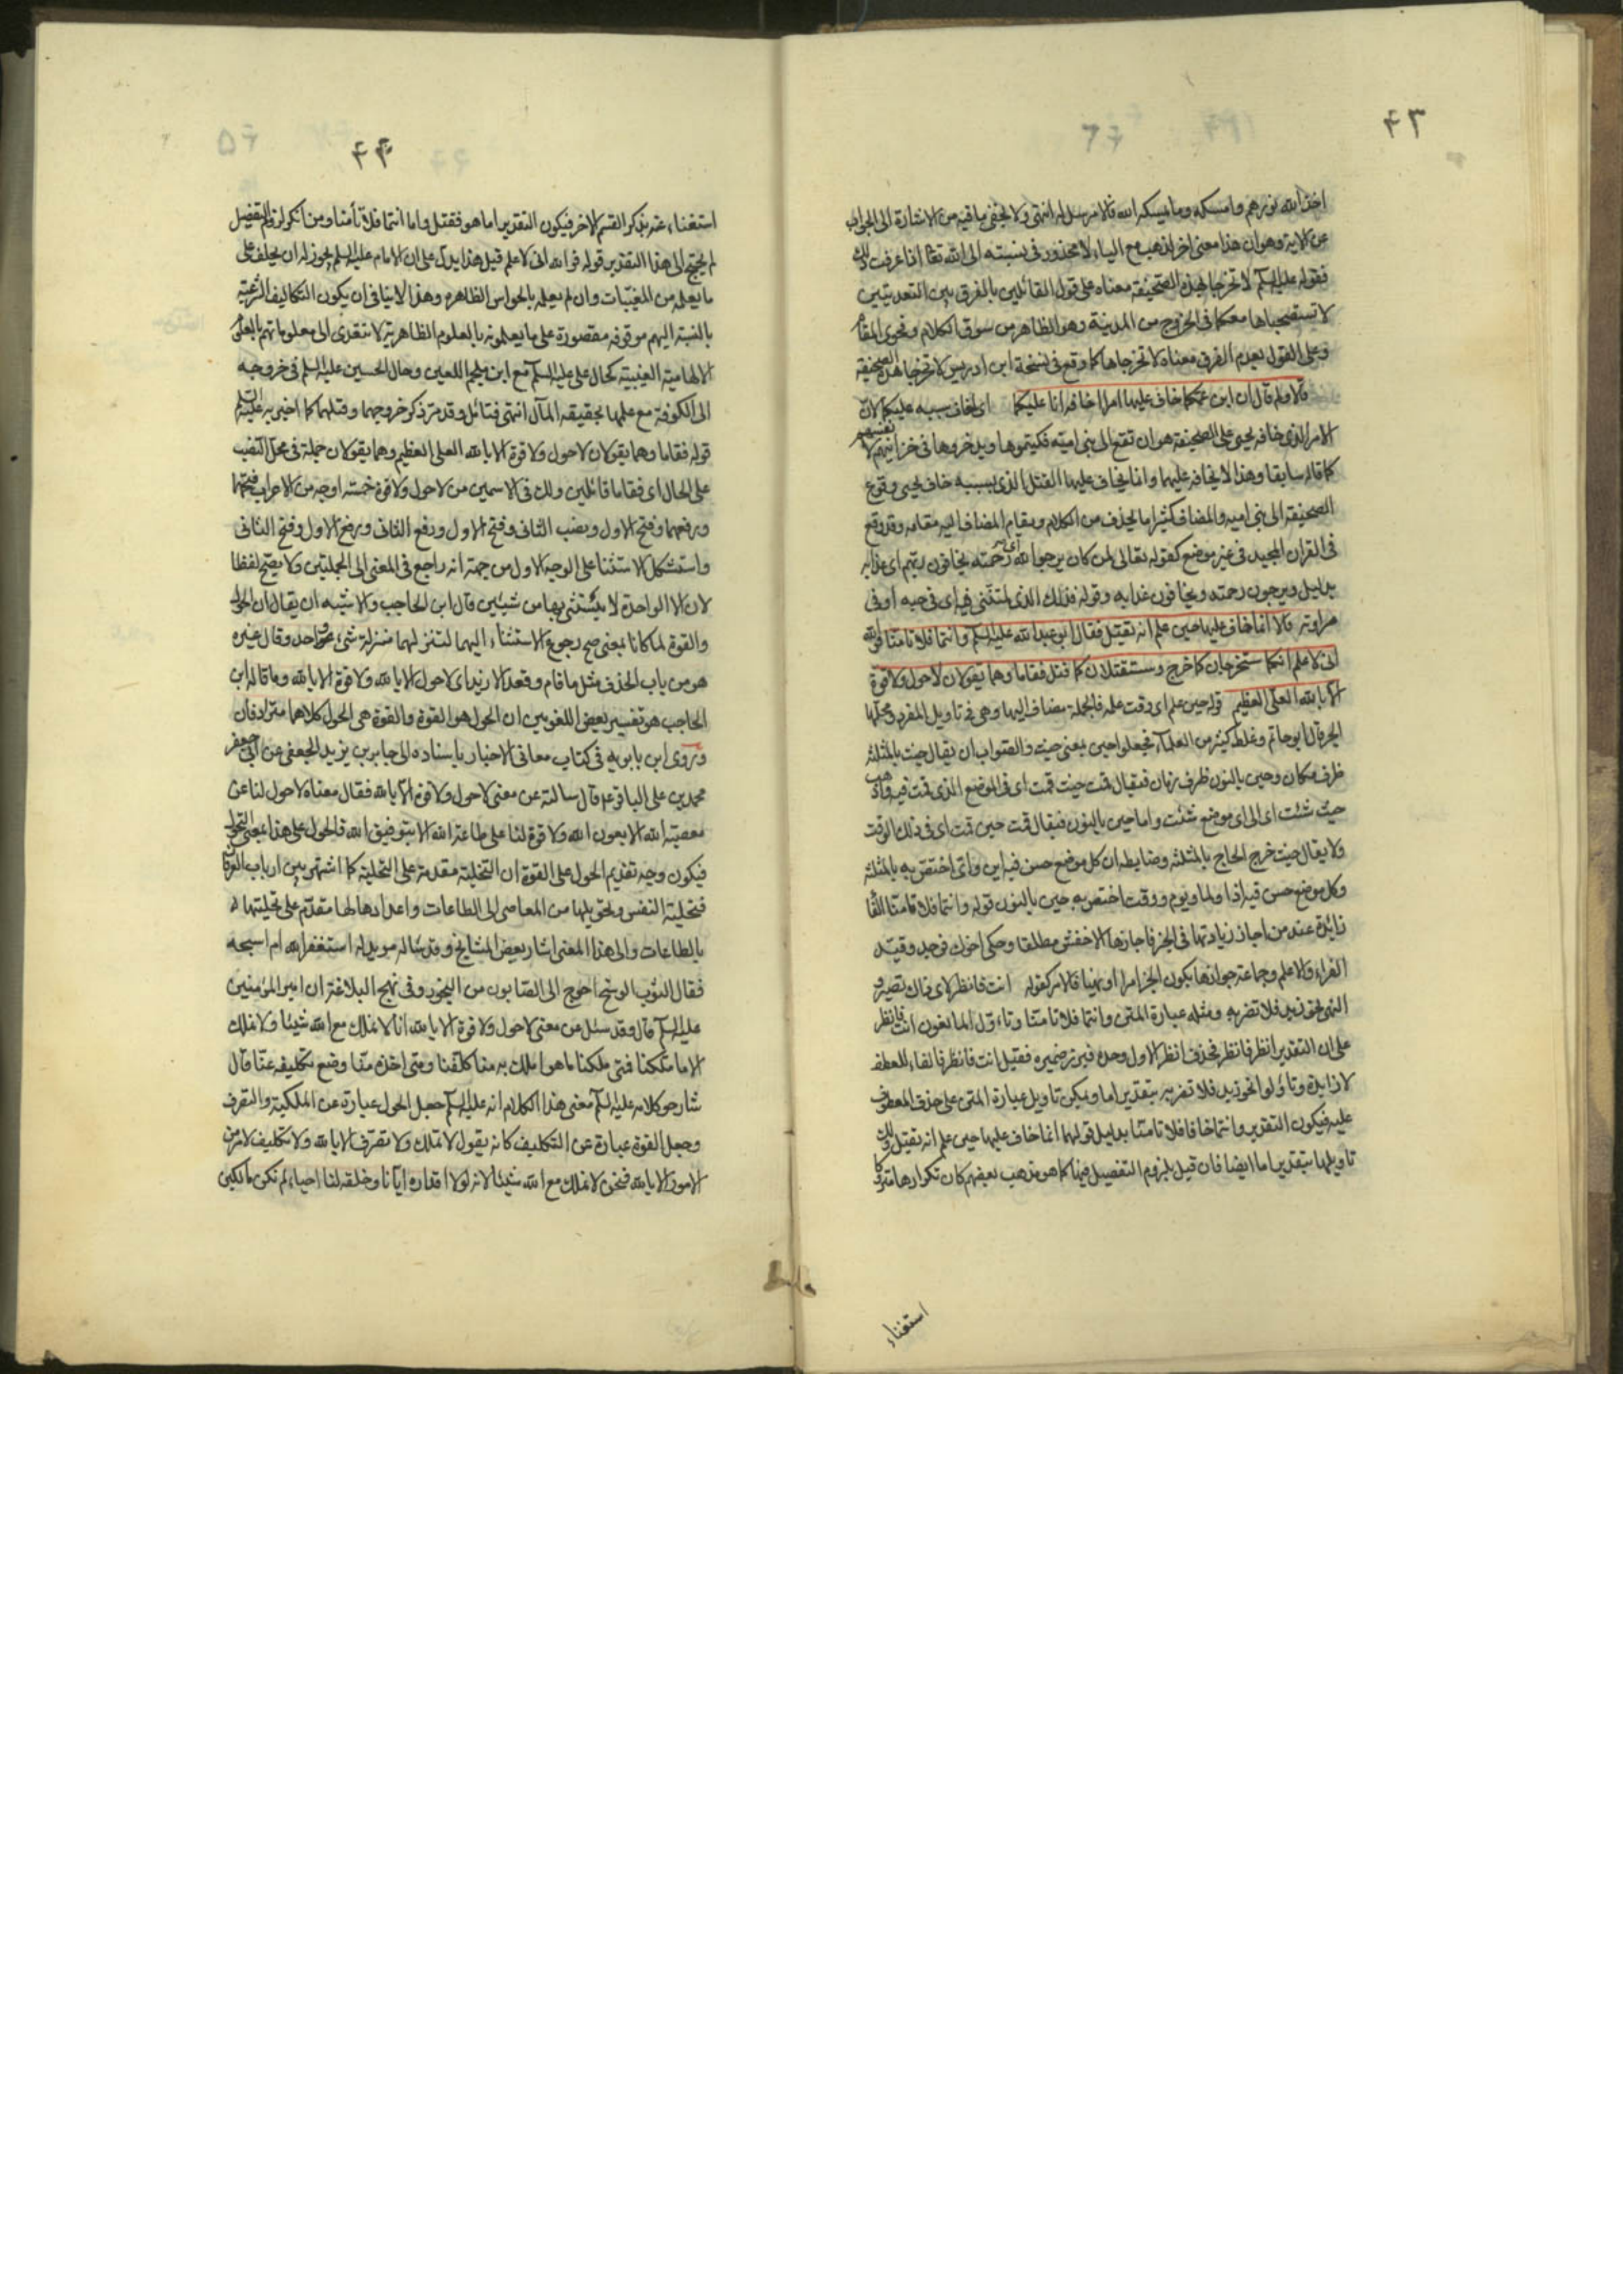 ٤٣
اخذ الله بنورهم وامسكه وما يمسكه الله فلا مرسل له انتهى ولا يخفى ما فيه من الاشارة الى الجواب
عن الاية وهو ان هذا معنى اخر لذهب مع الباء لا محذور في نسبته الى الله تعالى اذا عرفت ذلك
فقوله عليه السلم لا تخرجا بهذه الصحيفة معناه على قول القائلين بالفرق بين التعديتين
لا تستصحباها معكما في الخروج من المدينة وهو الظاهر من سوق الكلام وفحوى المقام
وعلى القول بعدم الفرق معناه لا تخرجاها كما وقع في نسخة ابن ادريس لا تخرجا هذه الصحيفة
قالا ولم قال ان ابن عمكما خاف عليها امرا اخافه انا عليكما اى اخاف بسببه عليكما لان
الامر الذى خافه يحيى على الصحيفة هو ان تقع الى بنى امية فيكتموها ويدخروها في خزاينهم لانفسهم
كما قاله سابقا وهذا لا يخافه عليهما وانما يخاف عليهما القتل الذى بسببه خاف يحيى وقوع
الصحيفة الى بنى اميه والمضاف كثيرا ما يحذف من الكلام ويقام المضاف اليه مقامه وقد وقع
في القران المجيد في غير موضع كقوله تعالى لمن كان يرجوا الله اى رحمته يخافون ربهم اى عذابه
بدليل ويرجون رحمته ويخافون عذابه وقوله فذلك الذى لمتننى فيه اى في حبه او في
مراودته قالا انما خاف عليها حين علم انه يقتل فقال ابو عبد الله عليه السلم وانتما فلا تامنا فوالله
انى لاعلم انكما ستخرجان كما خرج وستقتلان كما قتل فقاما وهما يقولان لا حول ولا قوة
الا بالله العلى العظيم قوله حين علم اى وقت علمه فالجملة مضاف اليها وهى في تاويل المفرد ومحلها
الجر قال ابو حاتم وغلط كثير من العلماء فجعلوا حين بمعنى حيث والصواب ان يقال حيث بالمثلثه
ظرف مكان وحين بالنون ظرف زمان فيقال قمت حيث قمت اى في الموضع الذى قمت فيه واذهب
حيث شئت اى الى اى موضع شئت واما حين بالنون فيقال قمت حين قمت اى في ذلك الوقت
ولا يقال حيث خرج الحاج بالمثلثه وضابطه ان كل موضع حسن فيه اين واى اختص به بالمثلثه
وكل موضع حسن فيه اذا ولما ويوم ووقت اختص به حين بالنون قوله وانتما فلا تامنا الفا
زائدة عند من اجاز زيادتها في الخبر فاجازها الاخفش مطلقا وحكى اخوك فوجد وقيد
الفراء والاعلم وجماعة جوازها بكون الخبر امرا او نهيا فالامر كقوله انت فانظر لاى ذاك تصير و
النهى نحو زيد فلا تضربه ومثله عبارة المتن وانتما فلا تامنا وتاءول المانعون انت فانظر
على ان التقدير انظر فانظر فحذف انظر الاول وحده فبرز ضميره فقيل انت فانظر فالفاء للعطف
لا زايدة وتاولوا نحو زيد فلا تضربه بتقدير اما ويمكن تاويل عبارة المتن على حذف المعطوف
عليه فيكون التقدير وانتما خافا فلا تامنا بدليل قولهما انما خاف عليها حين علم انه يقتل ولك
تاويلها بتقدير اما ايضا فان قيل يلزم التفصيل فيها كما هو مذهب بعضهم كان تكرارها متروكا
استغناء
٤٤
استغناء عنه بذكر القسم الاخر فيكون التقدير اما هو فقتل واما انتما فلا تأمنا ومن انكر لزوم التفصيل
لم يحتج الى هذا التقدير قوله فوالله انى لاعلم قيل هذا يدل على ان الامام عليه السلم يجوز له ان يحلف على
ما يعلمه من المغيبات وان لم يعلمه بالحواس الظاهره وهذا لا ينافى ان يكون التكاليف الشرعيه
بالنسبة اليهم موقوفه مقصورة على ما يعلمونه بالعلوم الظاهريه لا تتعدى الى معلوماتهم بالعلوم
الالهامية الغيبيه كحال على عليه السلم مع ابن ملجم اللعين وحال الحسين عليه السلم في خروجه
الى الكوفة مع علمهما بحقيقه المآل انتهى فتائل وقد مر ذكر خروجهما وقتلهما كما اخبر به عليه السلم
قوله فقاما وهما يقولان لا حول ولا قوة الا بالله العلى العظيم وهما يقولان جملة في محل النصب
على الحال اى فقاما قائلين ولك في الاسمين من لا حول ولا قوة خمسة اوجه من الاعراب فتحهما
ورفعهما وفتح الاول ونصب الثانى وفتح الاول ورفع الثانى ورفع الاول وفتح الثانى
واستشكل الاستثنا على الوجه الاول من جهة انه راجع في المعنى الى الجملتين ولا يصح لفظا
لان الا الواحدة لا يستثنى بها من شيئين قال ابن الحاجب والاشبه ان يقال ان الحول
والقوة لما كانا بمعنى صح رجوع الاستثناء اليهما لتنزلهما منزلة شىء واحد وقال غيره
هو من باب الحذف مثل ما قام وقعد الا زيد اى لا حول الا بالله ولا قوة الا بالله وما قاله ابن
الحاجب هو تفسير بعض اللغويين ان الحول هو القوة والقوة هى الحول كلاهما مترادفان
وروى ابن بابويه في كتاب معانى الاخبار باسناده الى جابر بن يزيد الجعفى عن ابى جعفر
محمد بن على الباقر ع قال سالته عن معنى لا حول ولا قوة الا بالله فقال معناه لا حول لنا عن
معصية الله الا بعون الله ولا قوة لنا على طاعة الله الا بتوفيق الله فالحول على هذا بمعنى التحول
فيكون وجه تقديم الحول على القوة ان التخلية مقدمة على التحلية كما اشتهر بين ارباب العرفان
فتخلية النفس وتحويلها من المعاصى الى الطاعات واعدادها لها مقدم على تحليتها
بالطاعات والى هذا المعنى اشار بعض المشايخ وقد ساله مريد له استغفر الله ام اسبحه
فقال الثوب الوسخ احوج الى الصابون من البخور وفى نهج البلاغة ان امير المؤمنين
عليه السلم قال وقد سئل عن معنى لا حول ولا قوة الا بالله انا لا نملك مع الله شيئا ولا نملك
الا ما ملكنا فمتى ملكنا ما هو املك به منا كلفنا ومتى اخذه منا وضع تكليفه عنا قال
شارحو كلامه عليه السلم معنى هذا الكلام انه عليه السلم جعل الحول عبارة عن الملكية والتصرف
وجعل القوة عبارة عن التكليف كانه يقول لا تملك ولا تصرف الا بالله ولا تكليف لامر من
الامور الا بالله فنحن لا نملك مع الله شيئا لانه لولا اقداره ايانا وخلقه لنا احياء لم نكن مالكين